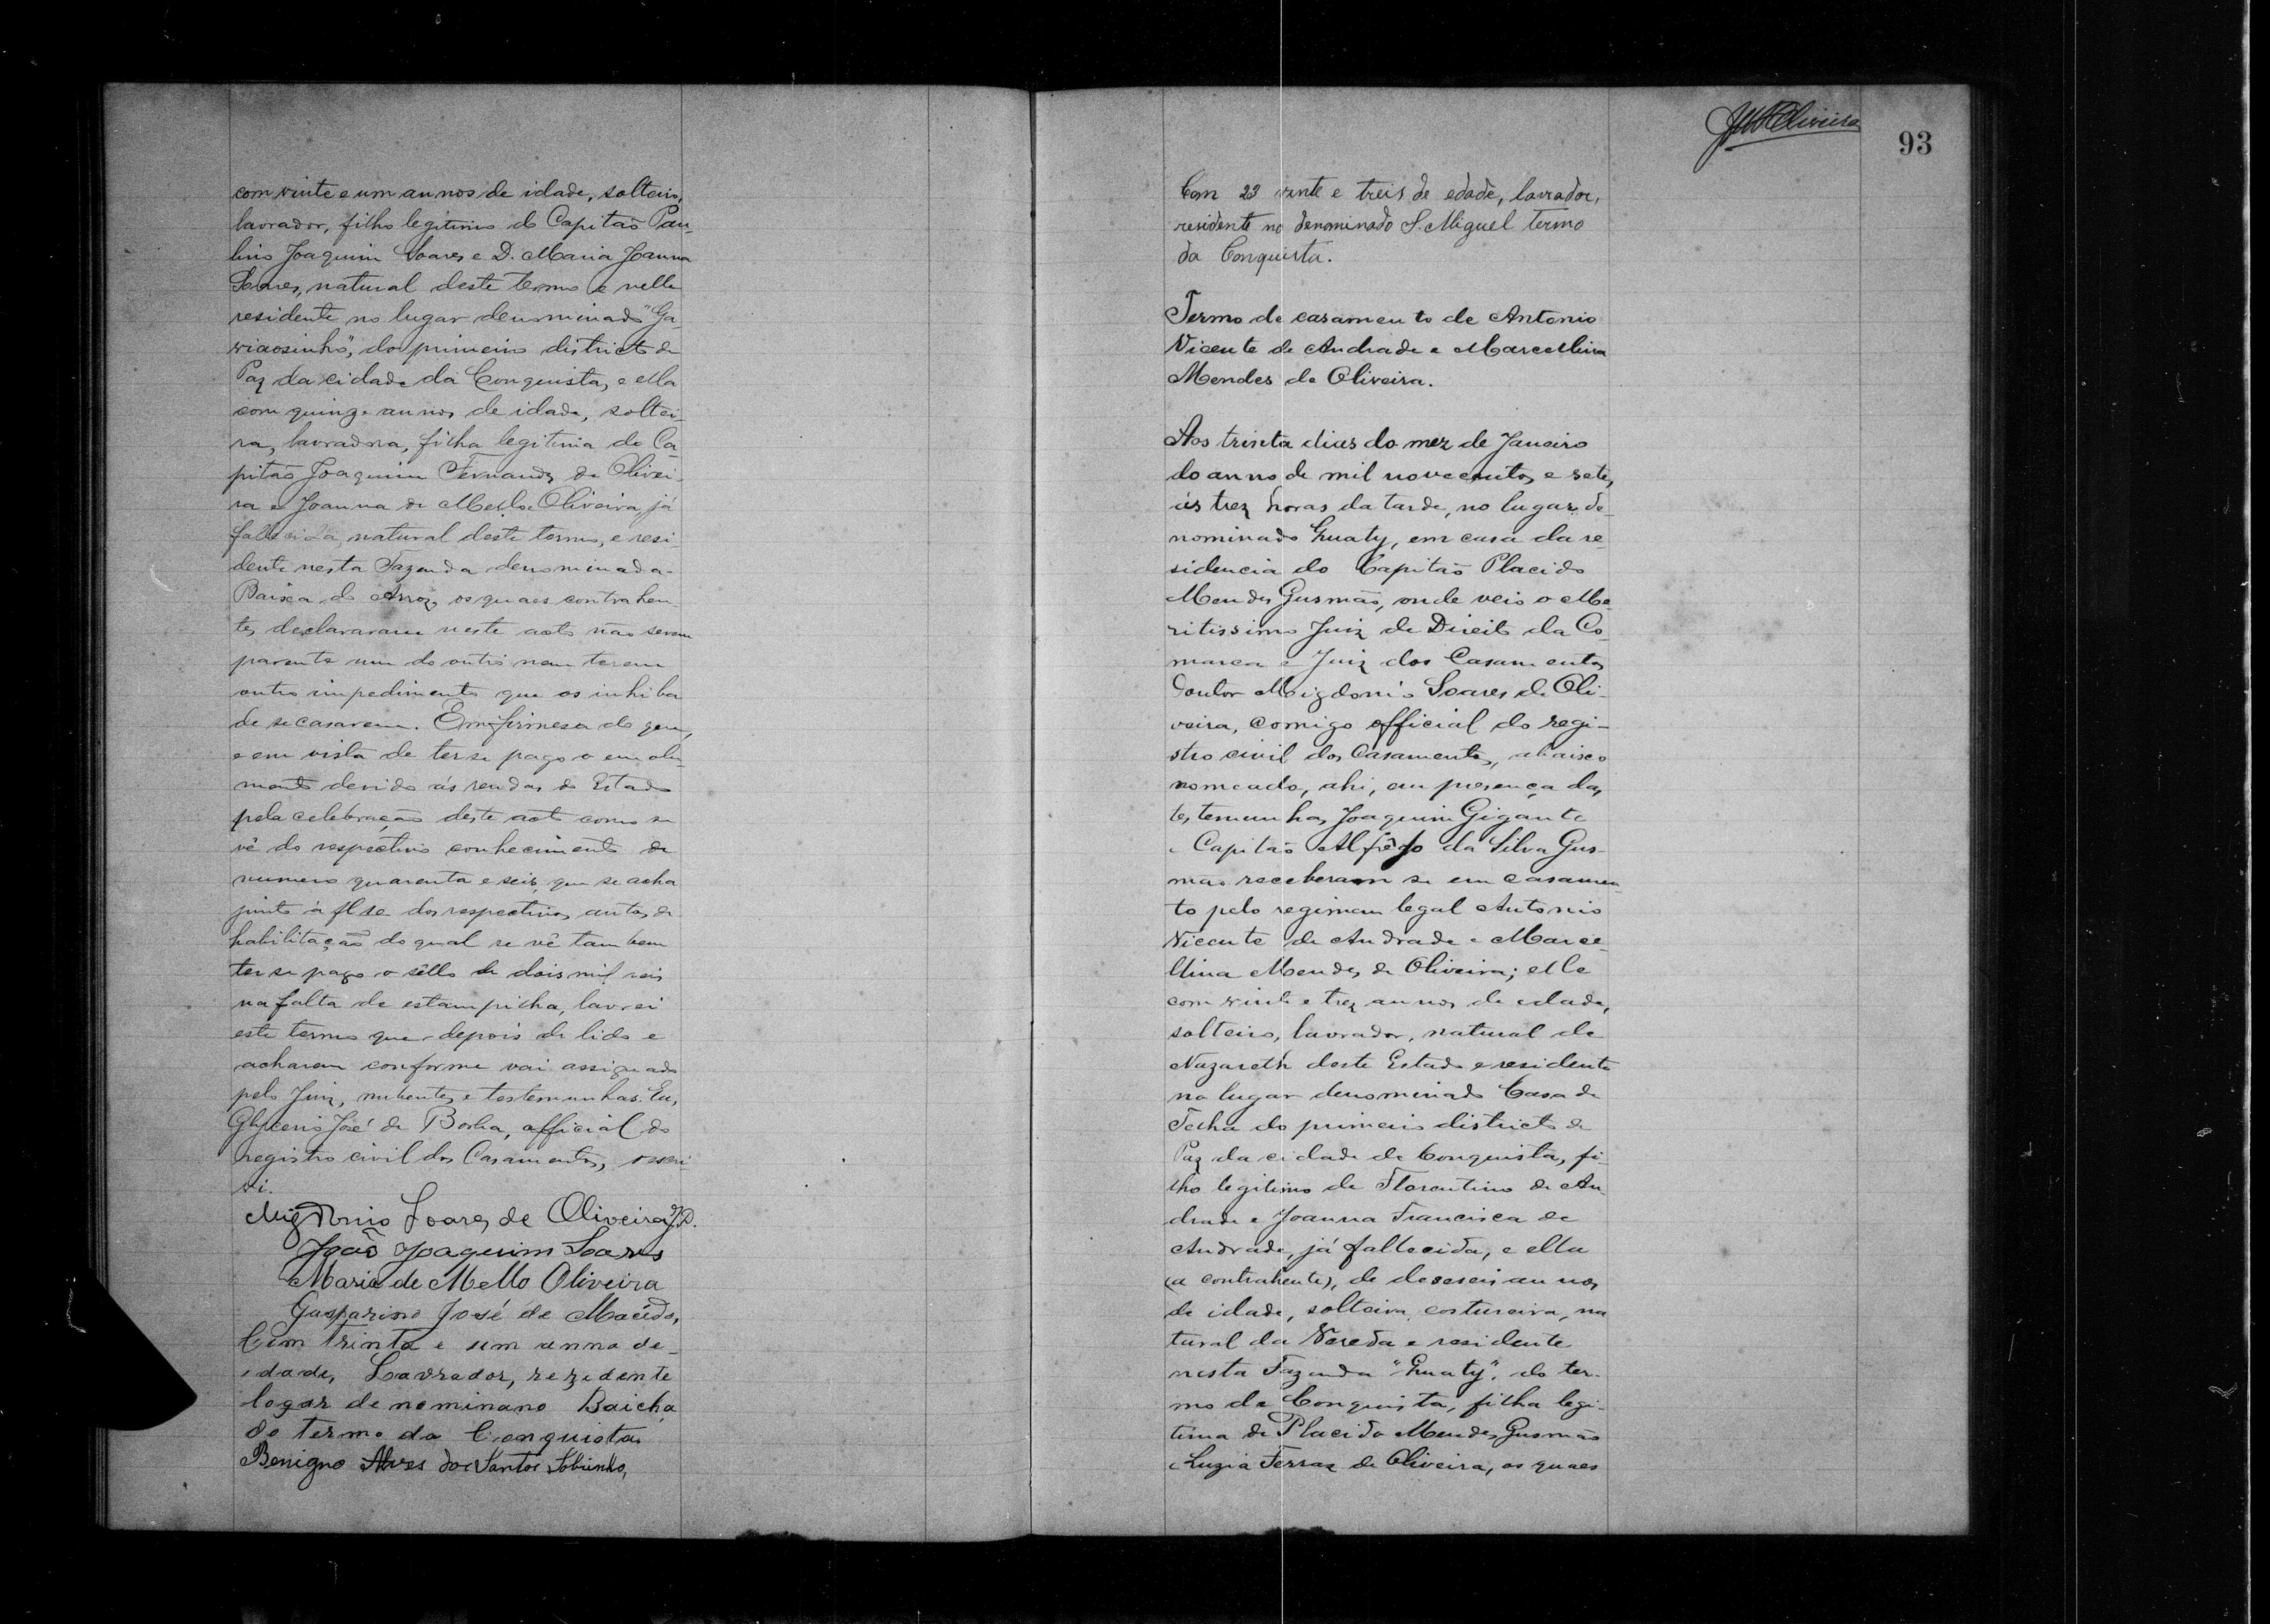 com vinte e um annos de idade, solteiro,
lavrador, filho legitimo do Capitão Pau-
lino Joaquim Soares e D. Maria Joanna
Soares, natural deste termo e nelle
residente no lugar denominado "Ga-
viãosinho", do primeiro districto de
Paz da cidade da Conquista, e ella
com quinze annos de idade, soltei-
ra, lavradora, filha legitima do Ca-
pitão Joaquim Fernandes de Olivei-
ra e Joanna de Mello Oliveira, já
fallecida, natural deste termo, e resi-
dente nesta Fazenda denominada-
Baixa do Arroz, os quaes contrahen-
tes declararam neste acto não serem
parente um do outro nem terem
outro impedimento que os inhiba
de se casarem. Em firmesa do que,
e em vista de ter se pago o emolu-
mento devido ás rendas do Estado
pela celebração deste acto como se
vê do respectivo conhecimento de
numero quarenta e seis, que se acha
junto á fl se dos respectivos autos de
habilitação do qual se vê tambem
ter se pago o sêllo de dois mil reis
na falta de estampilha, lavrei
este termo que depois de lido e
acharem conforme vai assignado
pelo Juiz, nubentes e testemunhas. Eu,
Glycerio José de Borba, official do
registro civil dos Casamentos, escre-
vi.
Migdonio Soares de Oliveira J.D.
João Joaquim Soares
Maria de Mello Oliveira
Gasparino José de Macêdo,
Com trinta e um anno de-
idade, Lavrador, rezidente
logar denominano Baicha
do termo da Conquista
Benigno Alves dos Santos Sobrinho,
JMOliveira
93
Com 23 vinte e treis de edade, lavrador,
residente no denominado S. Miguel termo
da Conquista.
Termo de casamento de Antonio
Vicente de Andrade e Marcellina
Mendes de Oliveira.
Aos trinta dias do mez de Janeiro
do anno de mil novecentos e sete,
ás trez horas da tarde, no lugar de-
nominado Guaty, em casa da re-
sidencia do Capitão Placido
Mendes Gusmão, onde veio o Me-
ritissimo Juiz de Direito da Co-
marca e Juiz dos Casamentos
Doutor Migdonio Soares de Oli-
veira, comigo official do regi-
stro civil dos Casamentos, abaixo
nomeado, ahi, em presença das
testemunhas Joaquim Gigante
e Capitão Alfrêdo da Silva Gus-
mão receberam se em casamen-
to pelo regimem legal Antonio
Vicente de Andrade e Marce-
llina Mendes de Oliveira; elle
com vinte e trez annos de edade,
solteiro, lavrador, natural de
Nazareth deste Estado e residente
no lugar denominado Casa de
Telha do primeiro districto de
Paz da cidade de Conquista, fi-
lho legitimo de Florentino de An-
drade e Joanna Francisca de
Andrade, já fallecida, e ella
(a contrahente), de deseseis annos
de idade, solteira, costureira, na
tural da Vereda e residente
nesta Fazenda "Guaty", do ter-
mo da Conquista, filha legi-
tima de Placido Mendes Gusmão
e Luzia Ferraz de Oliveira, os quaes